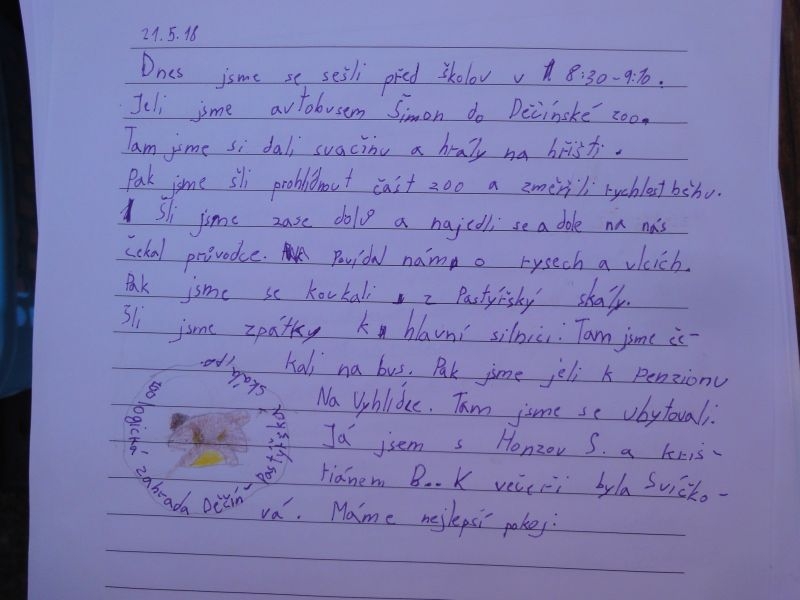 21.5.18
Dnes jsme se sešli před školou v 8:30-9:10.
Jeli jsme autobusem Šimon do Děčínské zoo.
Tam jsme si dali svačinu a hrály na hřišti.
Pak jsme šli prohlídnout část zoo a změřili rychlost běhu.
Šli jsme zase dolů a najedli se a dole na nás
čekal průvodce. Povídal nám o rysech a vlcích.
Pak jsme se koukali z Pastýřský skály.
Šli jsme zpátky k hlavní silnici. Tam jsme če-
kali na bus. Pak jsme jeli k penzionu
Na Vyhlídce. Tam jsme se ubytovali.
Já jsem s Honzou S. a Kris-
tiánem B.. K večeři byla Svíčko-
vá. Máme nejlepší pokoj.
zoologická zahrada Děčín